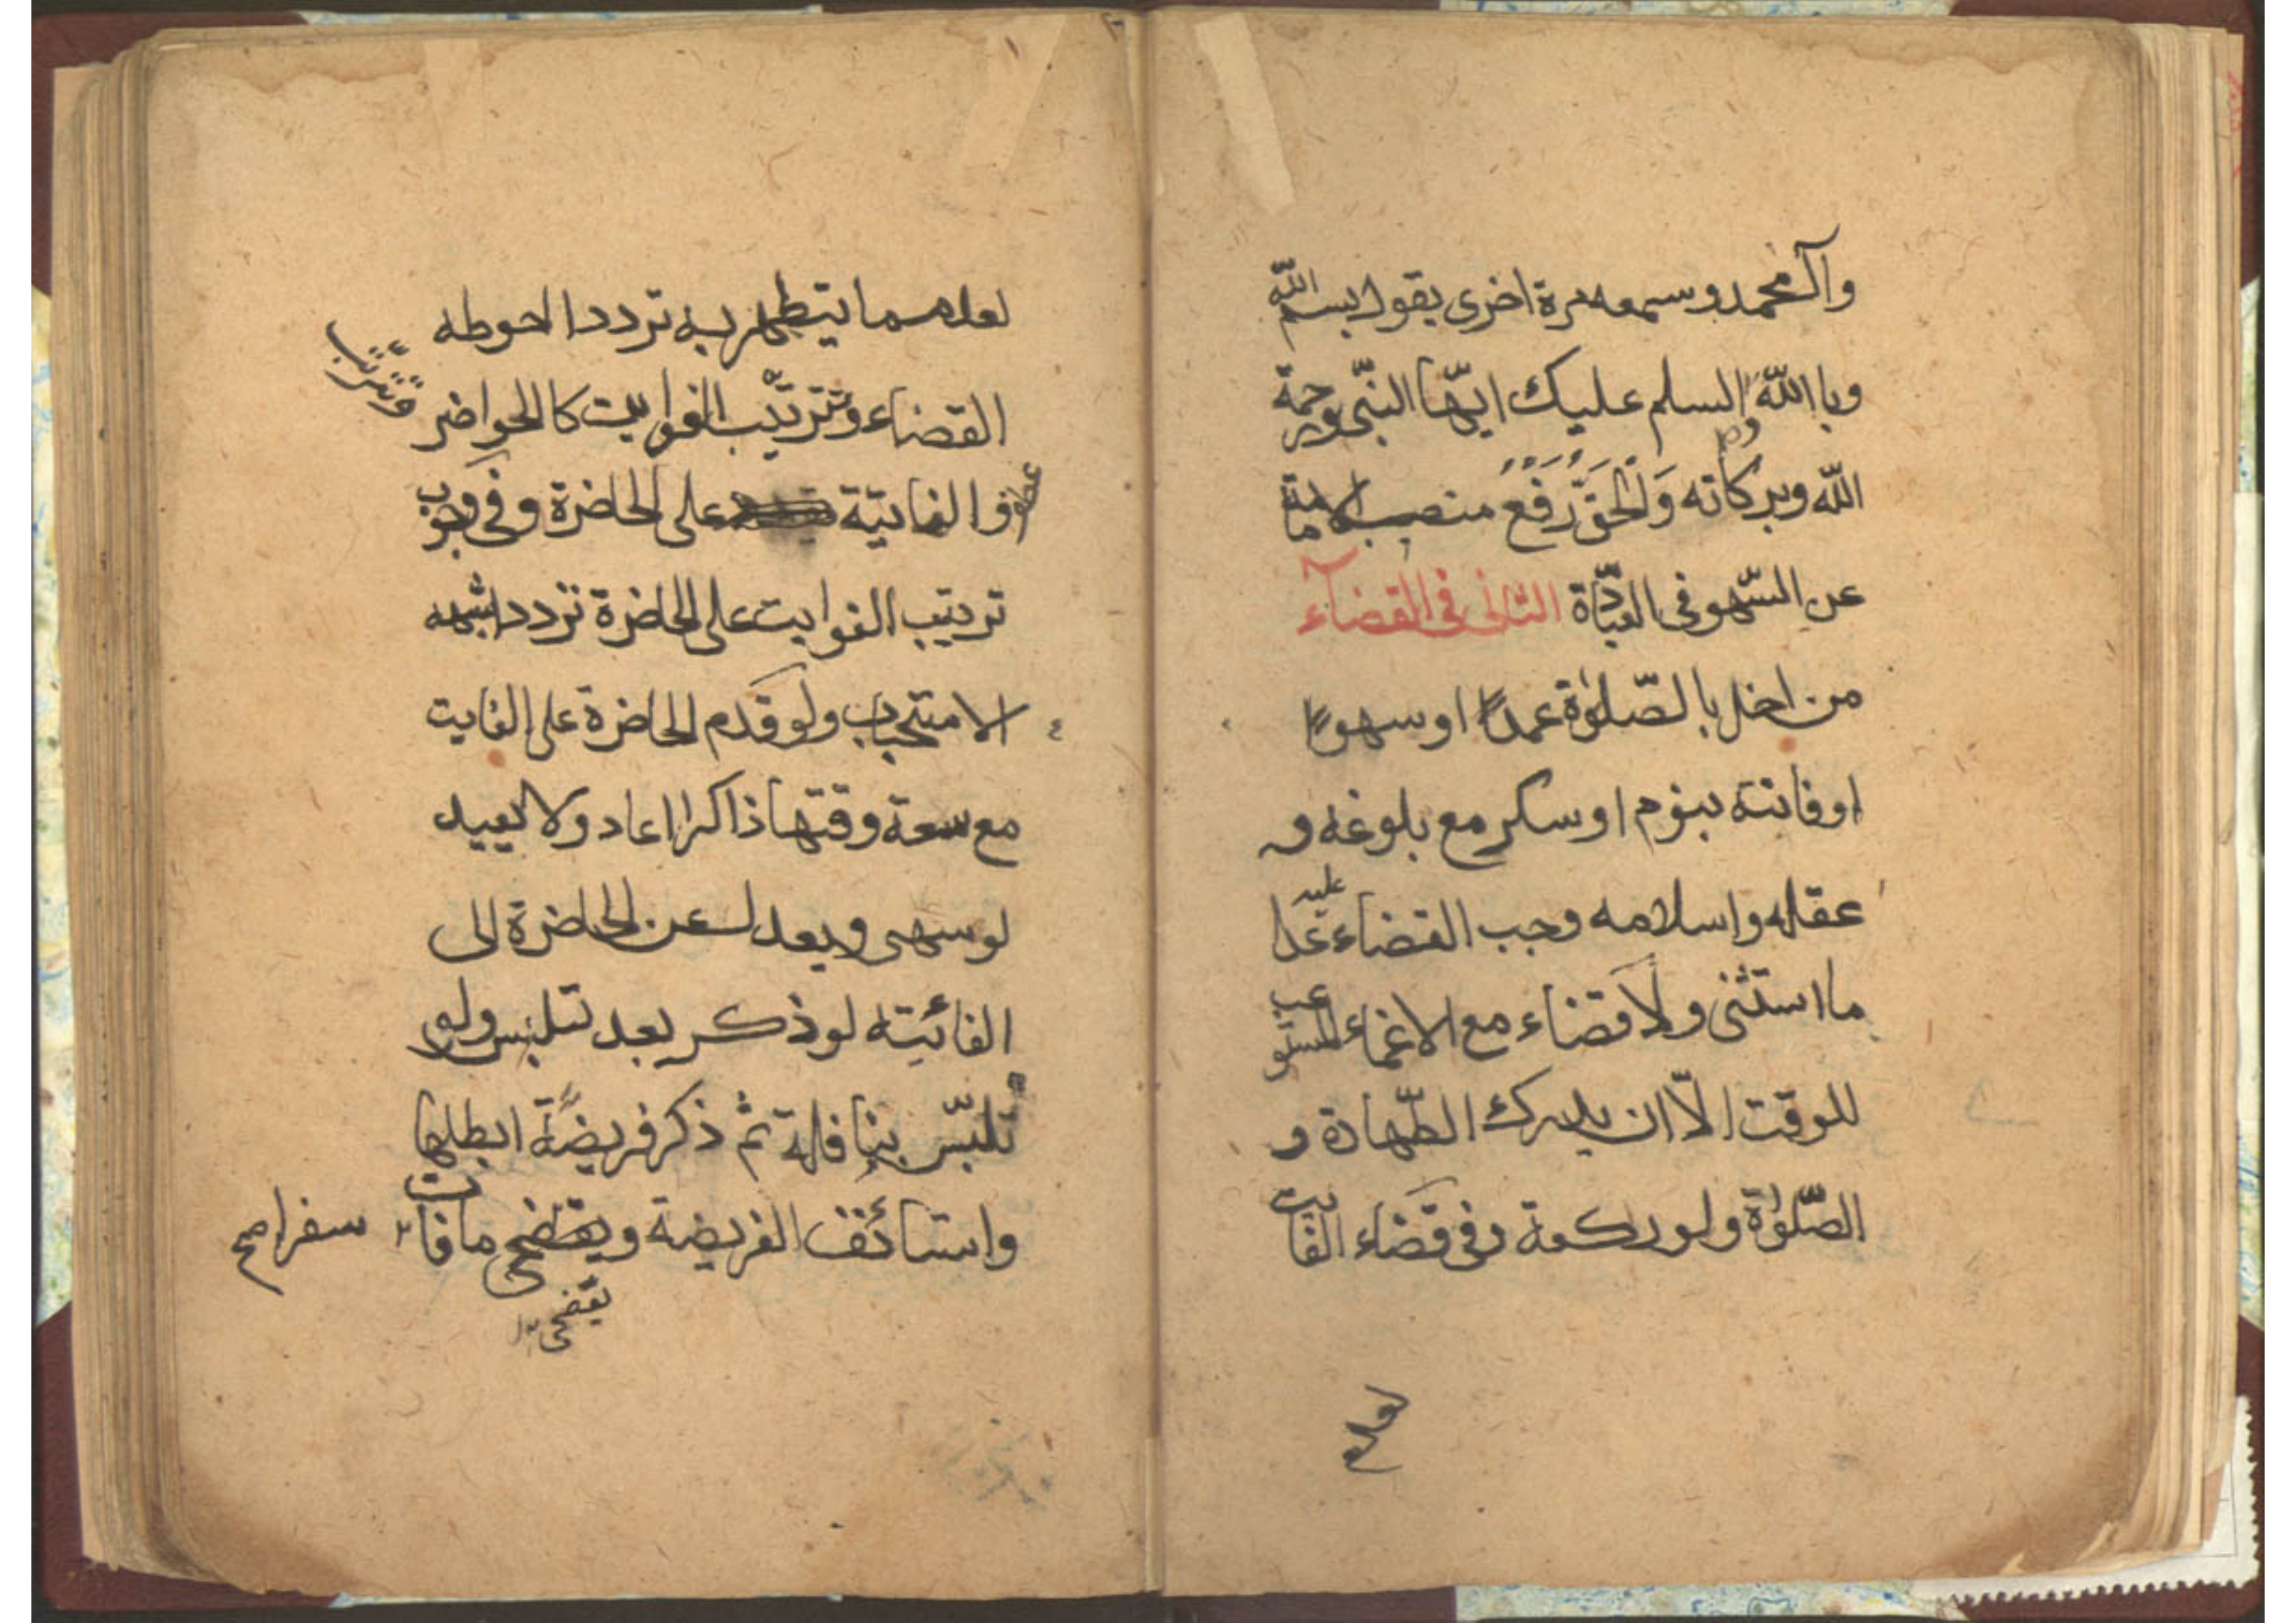 وآل محمد وسمعه مرة اخرى يقول بسم الله
وبا الله والسلم عليك ايّها النبّى ورحمة
الله وبركاته وَالحقّ رَفعُ منصب الامامة
عن السّهو فى العبّادة الثانى فى القضآء
من اخل بالصّلوٰة عمدًا او سهوًا
او فاتته بنوم او سكر مع بلوغه و
عقله واسلامه وجب القضاء عليه عدا
ما استثنى ولا قضاء مع الاغماء المستوعب
للوقت الّا ان يدرك الطّهارة و
الصّلوٰة ولو ركعة وفى قضاء الفايت
لعدم
لعدم ما يتطهر به تردد احوطه
القضاء وتترتّب الفوايت كالحواضر
وتترتب
والفايتة على الحاضرة وفى وجوب
ترتيب الفوايت على الحاضرة تردد اشبهه
الاستحباب ولو قدم الحاضرة على الفايت
مع سعة وقتها ذاكرا اعاد ولا يعيد
لو سهى ويعدل عن الحاضرة الى
الفائيته لو ذكر بعد تلبس ولو
تلبّس بنافلة ثم ذكر فريضةً ابطلها
واستائف الفريضة ويقضى ما فات سفرا صح
يقضى